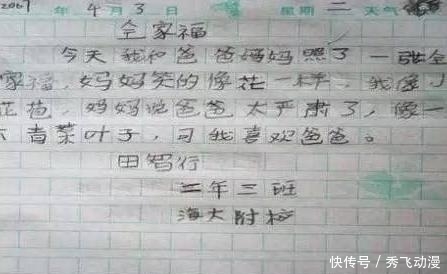 2007年4月3日 星期二 天气
全家福
今天我和爸爸妈妈照了一张全
家福,妈妈笑的像花一样,我像
花苞,妈妈说爸爸太严肃了,像一
青菜叶子,可我喜欢爸爸。
田智行
二年三班
海大附校
快传号/秀飞动漫